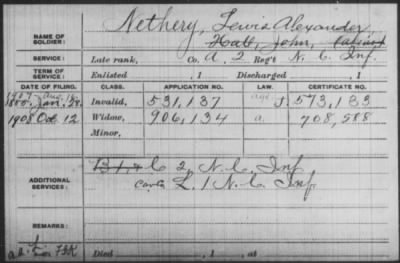 NAME OF SOLDIER: Nethery, Lewis Alexander
Hall, John, (alias)
SERVICE: Late rank, Co. A, 2 Reg't N. C. Inf.
TERM OF SERVICE: Enlisted , 1 Discharged , 1
DATE OF FILING. CLASS. APPLICATION NO. LAW. CERTIFICATE NO.
Jan. Invalid, 531,137 J. 573,183
1908 Oct. 12 Widow, 906,134 a. 708,588
Minor,
ADDITIONAL SERVICES: C 2, N. C. Inf.
L. 1 N. C. Inf.
REMARKS:
Died , 1 , at